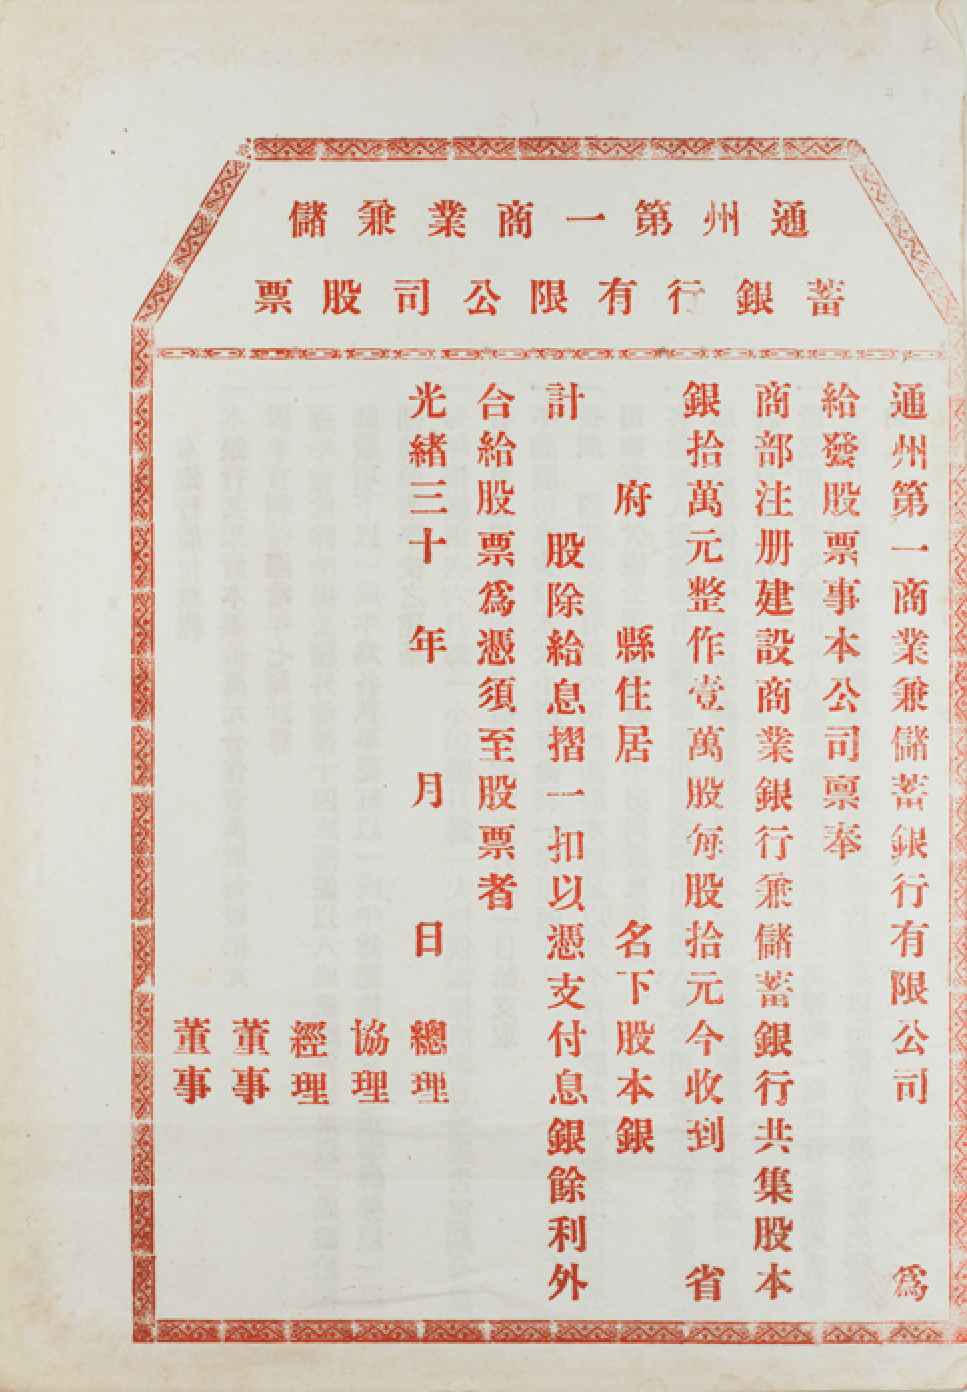 通州第一商業兼儲
蓄銀行有限公司股票
通州第一商業兼儲蓄銀行有限公司 爲
給發股票事本公司稟奉
商部注册建設商業銀行兼儲蓄銀行共集股本
銀拾萬元整作壹萬股每股拾元今收到 省
府 縣住居 名下股本銀
計 股除給息摺一扣以憑支付息銀餘利外
合給股票爲憑須至股票者
光緒三十 年 月 日 總理
協理
經理
董事
董事